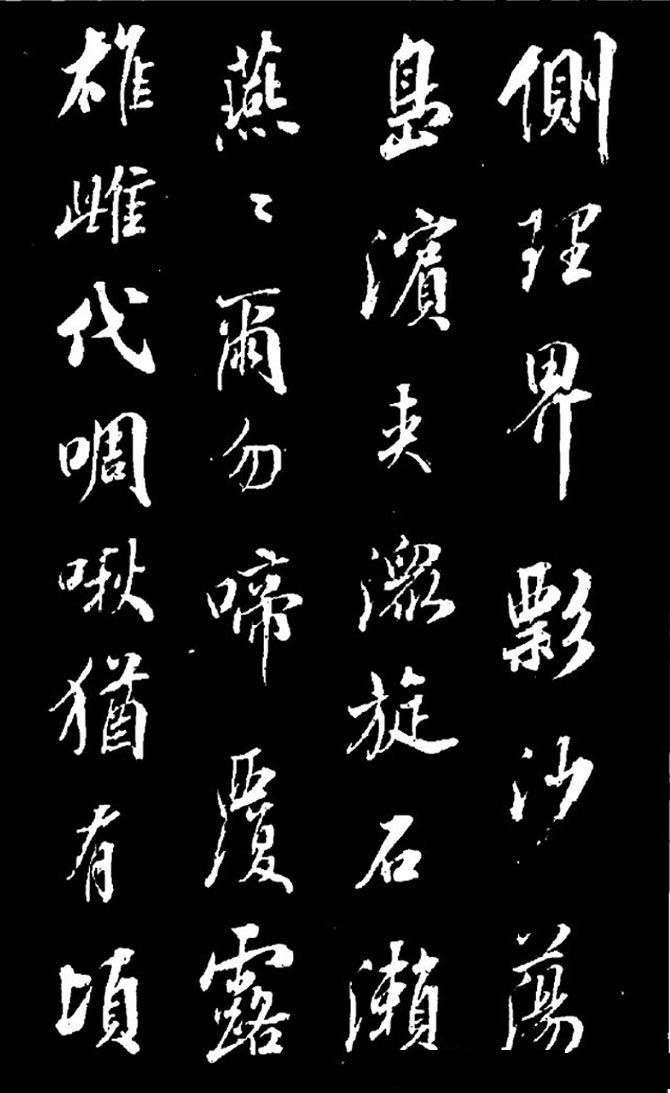 側理界剽沙蕩
島濱夾潀旋石瀨
燕〻爾勿啼覆露
雄雌代啁啾猶有頃